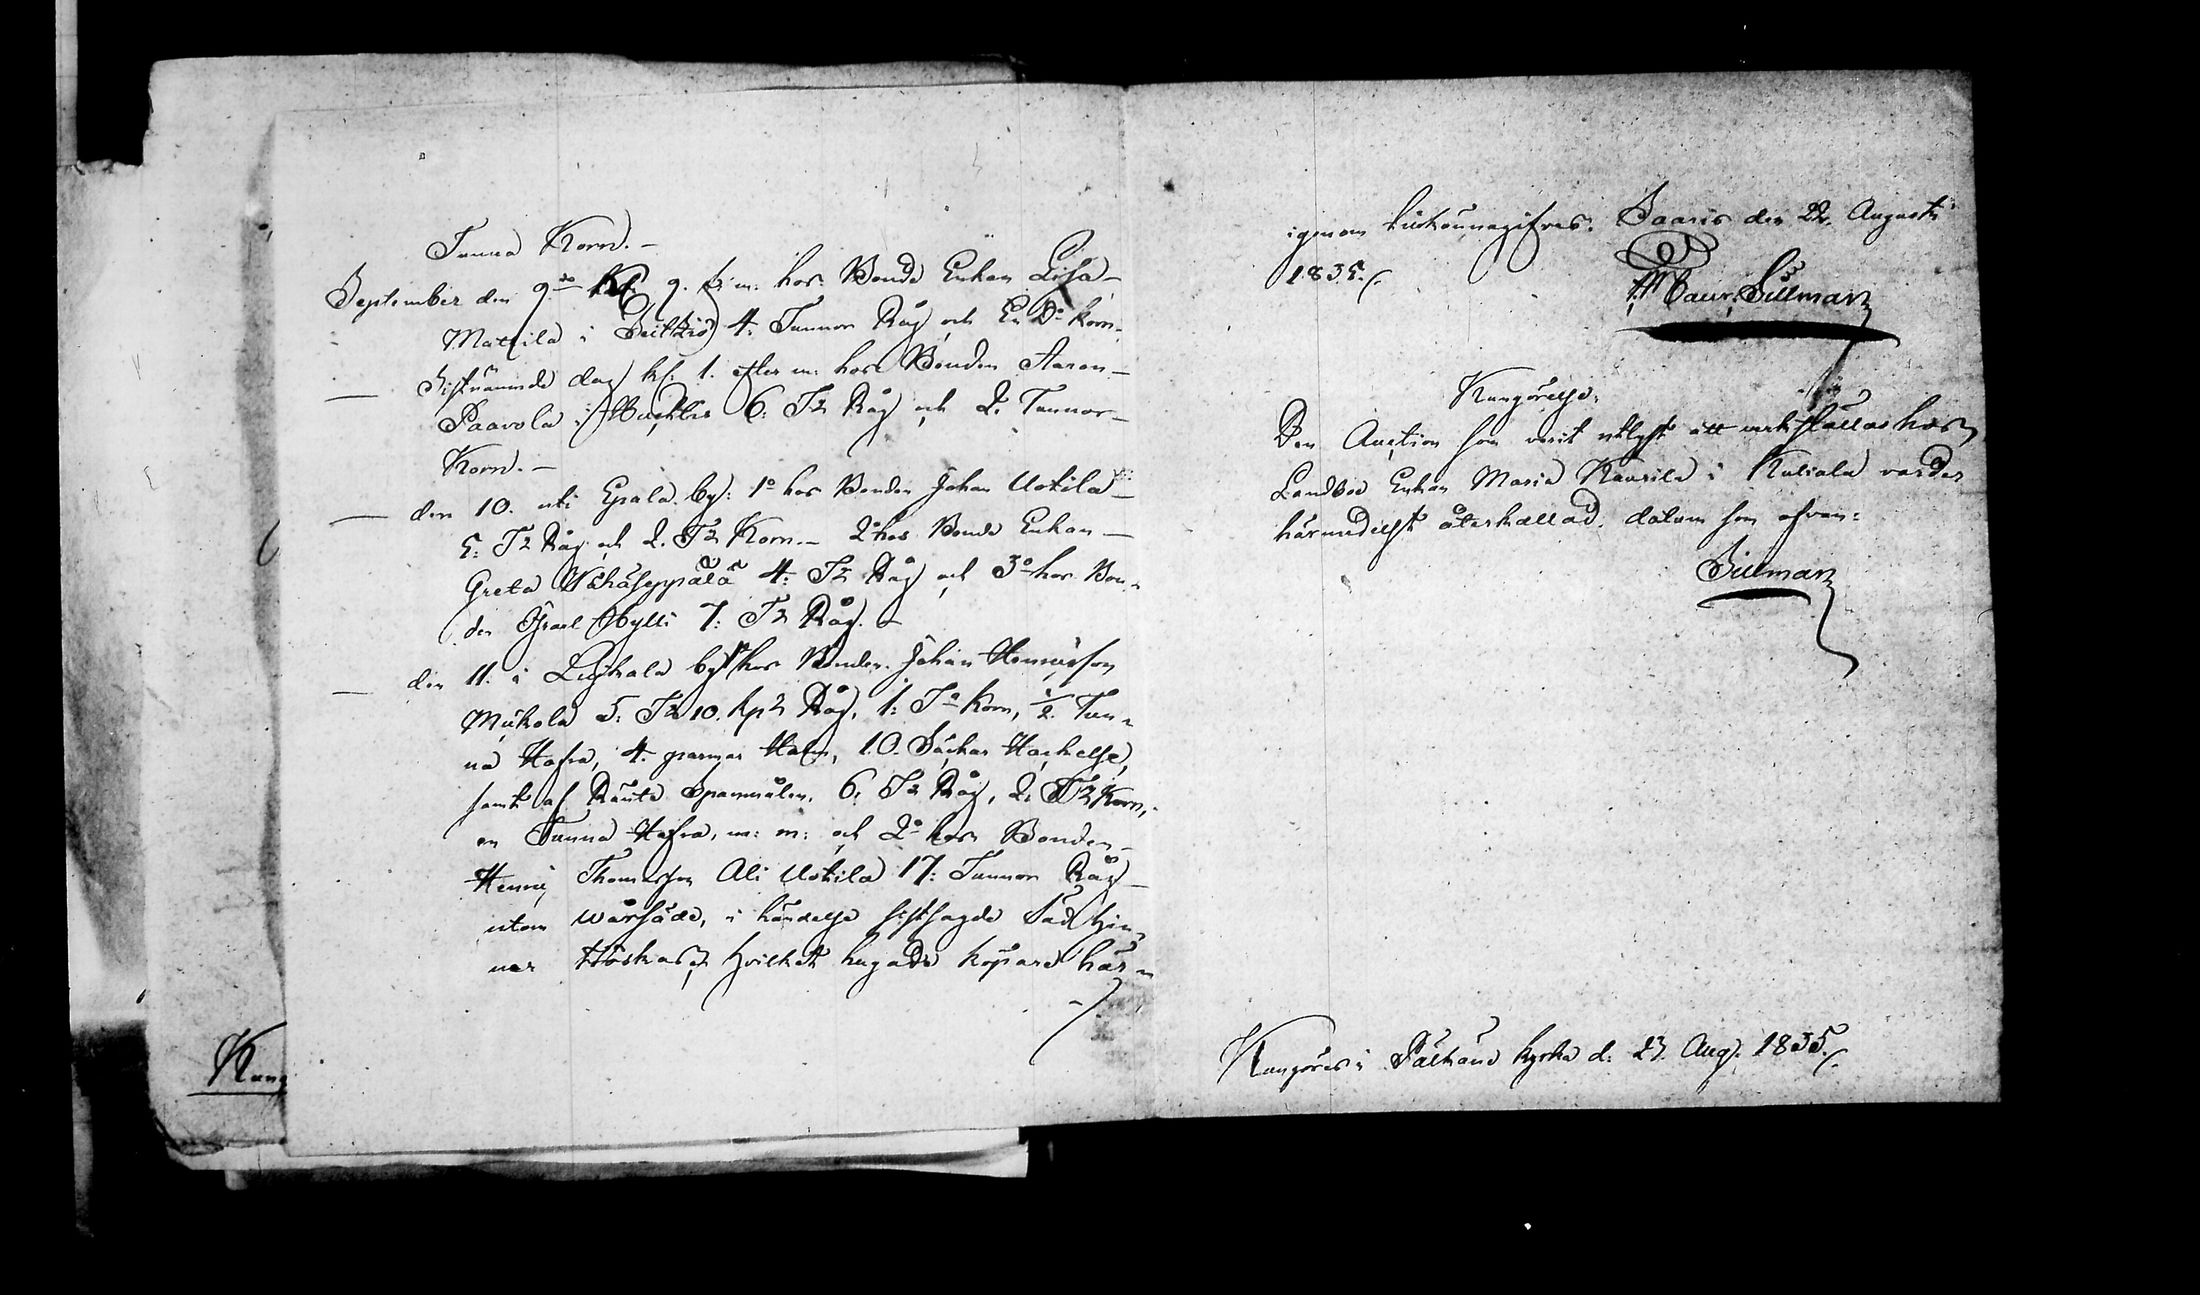 Tunna Korn. –
September den 9de Kl. 9. f: m: hos Bonde Enkan Lisa –
Mattila i Seitziö 4. Tunnor Råg och En Do Korn.
— Sistnämnde dag kl. 1. efter m: hos Bonden Aaron –
Paavola i 6: Tr Råg och 2. Tunnor –
Korn. –
— den 10. uti Epala by: 1o hos Bonden Johan Uotila –
5: Tr Råg och 2. Tr Korn. – 2o hos Bonde Enkan –
Greta Wähäseppälä 4: Tr Råg och 3o hos Bon-
den Israel Sylli 7: Tr Råg. –
— den 11. i Luikala by 1o hos Bonden Johan Henricsson
Mickola 5: Tr 10. kpr Råg, 1: Ta Korn, 1/2 Tun-
na Hafra, 4. parmar Halm, 10. Säckar Hackelse,
samt af Ränte Spanmålen, 6: Tr Råg, 2. Tr Korn,
en Tunna Hafra, m: m: och 2o hos Bonden –
Henric Thomasson Ali Uotila 17: Tunnor Råg –
utom wårsäde, i händelse sistsagde Säd hin-
ner tröskas, hvilket hugade köpare här-
Kung
igenom tilkännagifves. Saaris den 22. Augusti
1835./.
Maur: Sillman
Kungörelse.
Den Auction som varit utlyst att verkställas hos
Landboe Enkan Maria Kaurila i Kuliala varder
härmedelst återkallad. datum som ofvan:
Sillman
Kungöres i Pälkäne kyrka d: 23. Aug. 1835./.